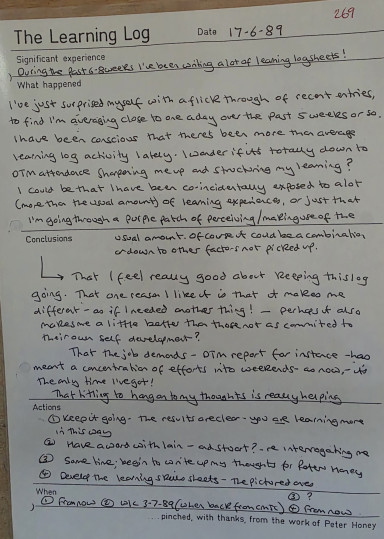 269
The Learning Log Date 17-6-89
Significant experience
During the past 6-8 weeks I've been writing a lot of learning logsheets!
What happened
I've just surprised myself with a flick through of recent entries,
to find I'm averaging close to one a day over the past 5 weeks or so.
I have been conscious that there's been more than average
learning log activity lately. I wonder if its totally down to
OTM attendance sharpening me up and structuring my learning?
I could be that I have been co-incidentally exposed to a lot
(more than the usual amount) of learning experiences, or just that
I'm going through a purple patch of perceiving/making use of the
Conclusions usual amount. Of course it could be a combination
or down to other factors not picked up.
That I feel really good about keeping this log
going. That one reason I like it is that it makes me
different - as if I needed another thing! - perhaps it also
makes me a little better than those not as commited to
their own self development?
That the job demands - OTM report for instance - has
meant a concentration of efforts into weekends - as now, - its
the only time I've got!
That hitting to hang on to my thoughts is really helping
Actions
① Keep it going - The results are clear - you are learning more
in this way
② Have a word with Iain - and Stuart? - re interrogating me
③ Some time; begin to write up my thoughts for Peter Honey
④ Develop the learning skills sheets - The pictured ones
When ③ ?
① From now ② w/c 3-7-89 (when back from CMTC) ④ From now
...pinched, with thanks, from the work of Peter Honey